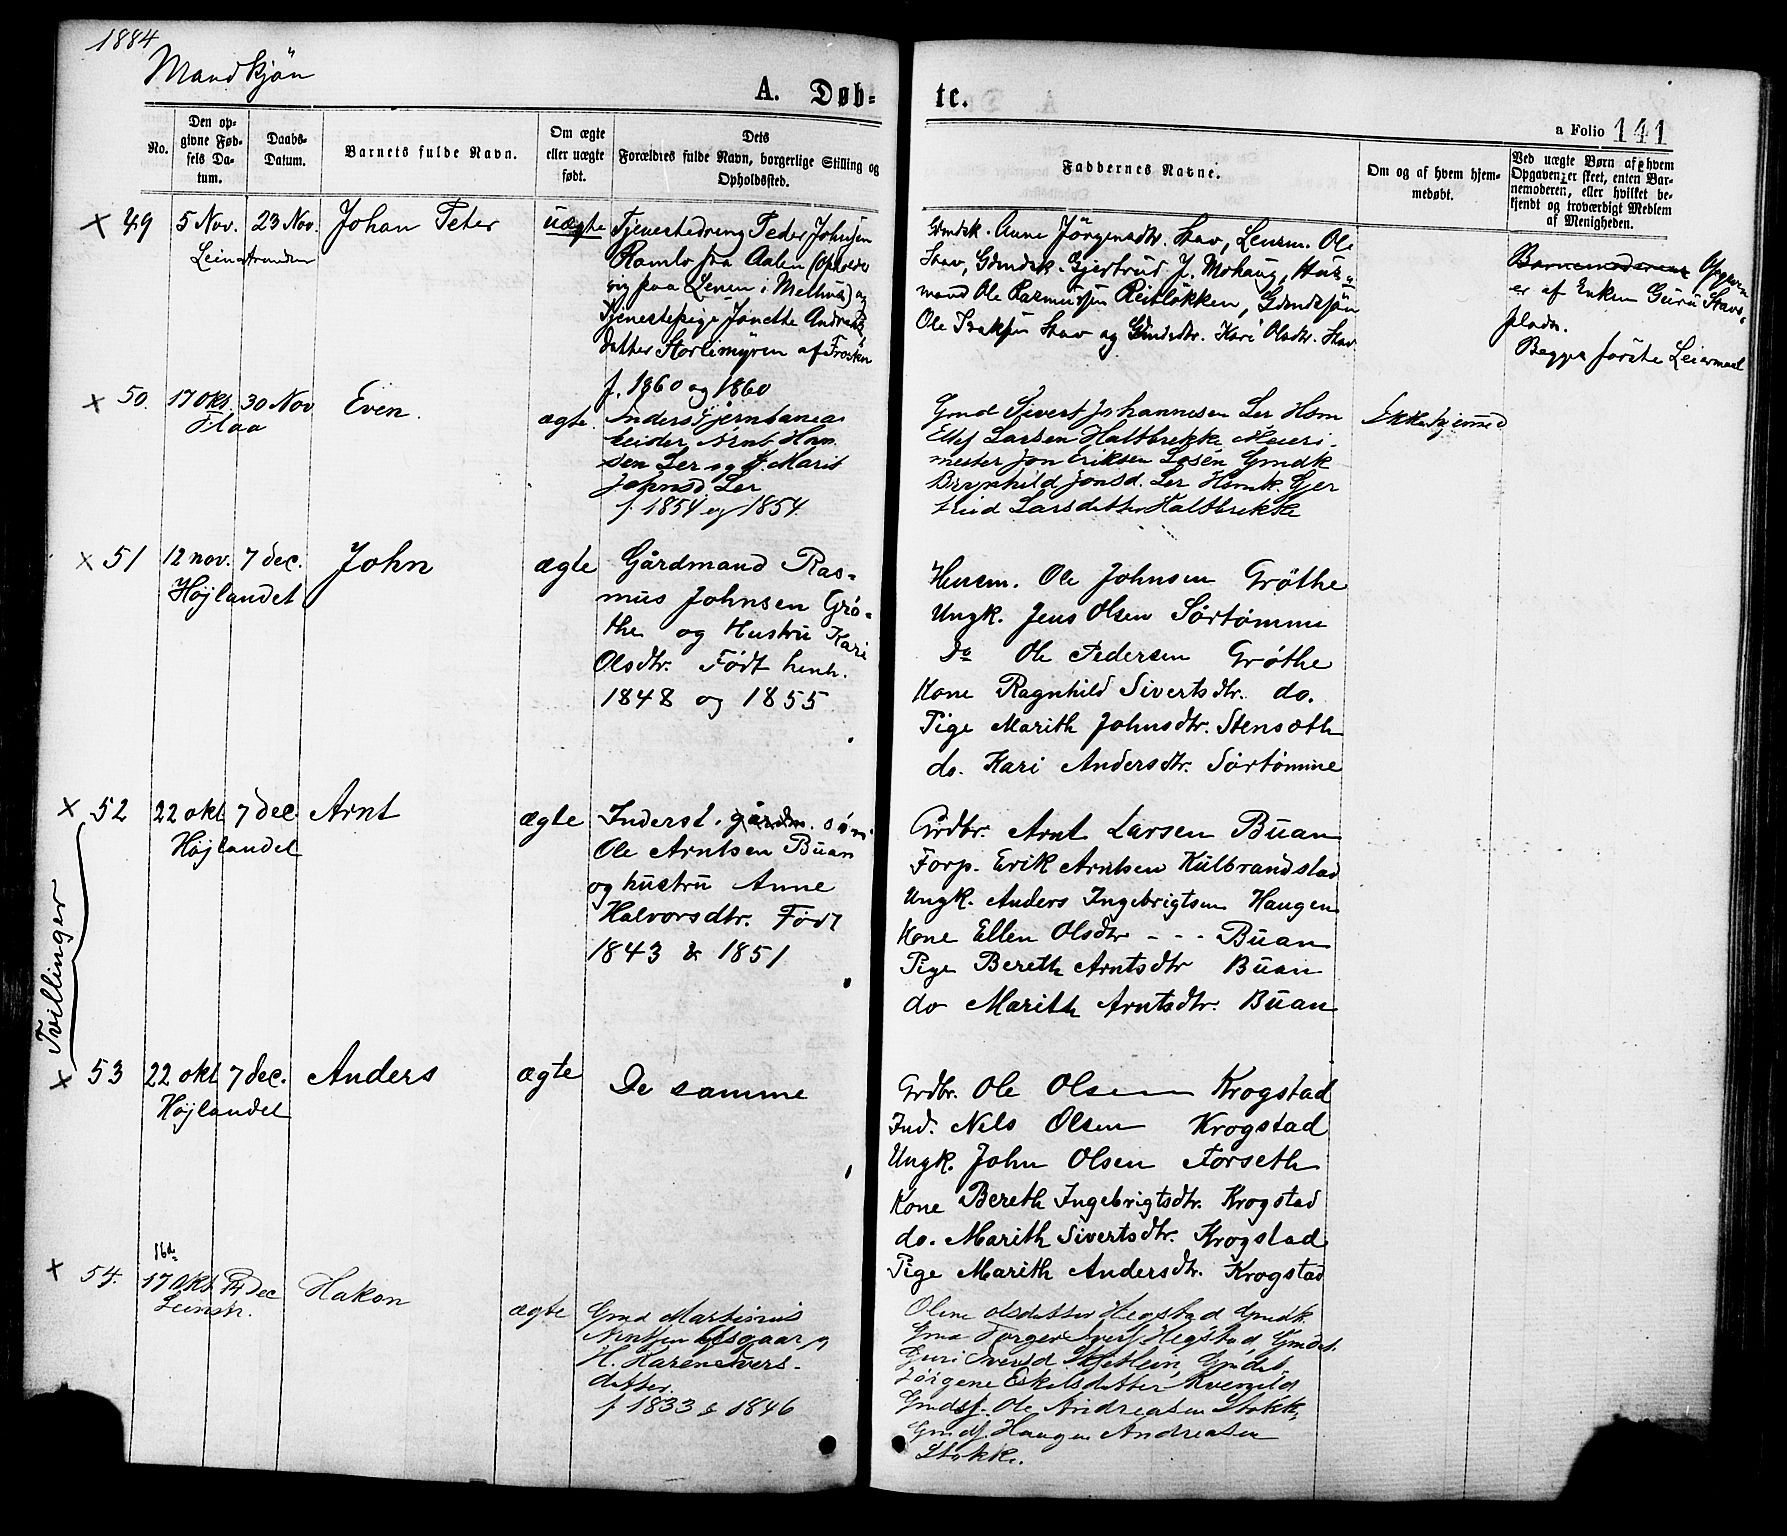 1884
Mandkjön
A. Døb- te.
a Folio 141
No.
Den op-
givne Fød-
sels Da-
tum.
Daabs-
Datum.
Barnets fulde Navn.
Om ægte
eller uægte
født.
Dets
Forældres fulde Navn, borgerlige Stilling og
Opholdssted.
Faddernes Navne.
Om og af hvem hjem-
medøbt.
Ved uægte Børn af hvem
Opgaven er skeet, enten Bar-
nemoderen, eller hvilket be-
kjendt og troværdigt Medlem
af Menigheden.
× 49 5 Nov. 23 Nov. Johan Peter uægte
Leinstranden
Tjenestedreng Peder Johnsen
Ramlo fra Aalen (Opholder
sig paa Lenen i Melhus) og
Tjenestepige Jonetta Andreas
datter Storlimyren af
f. 1860 og 1860
Gmdsk. Anne Jörgensdtr. Stav, Lensm. Ole
Stav, Gdmdsk. Gjertrud J. Mohaug, Hus-
mand Ole Rasmussen Reitløkken, Gdmdsön
Ole Isaksen Stav og Gdmdsdtr. Kari Olsdtr. Stav
Barnemoderens Opgaven
er af Enken Guru Stavs-
pladn.
Begges første Leiermaal
× 50. 17 Okt. 30 Nov Even. ægte
Flaa
Inderst Jernbanea
beider Arnt Han
sen Ler og H. Marit
Johnsd. Ler
f. 1854 og 1854.
Gmd Sivert Johannesen Ler Hsm
Ellef Larsen Haltbrekke Meieri-
mester Jon Eriksen Losen Gmdk
Brynhild Jonsd. Ler Hsmk. Gjer
trud Larsdatter Haltbrekke
Ikke hjemmed
× 51 12 nov. 7 dec. John ægte
Højlandet
Gårdmand Ras-
mus Johnsen Grö-
the og Hustru Kari
Olsdtr. Født henh.
1848 og 1855
Husm. Ole Johnsen Gröthe
Ungk. Jens Olsen Sörtömme
Do Ole Pedersen Grøthe
Kone Ragnhild Sivertsdtr. do.
Pige Marith Johnsdtr. Stensæth
do. Kari Andersdtr. Sörtömme
× 52 22 okt 7 dec. Arnt ægte
Højlandet
Inderst. gårdm. søn
Ole Arntsen Buan
og hustru Anne
Halvorsdtr. Født
1843 & 1851
Grdbr. Arnt Larsen Buan
Forp. Erik Arntsen Kulbrandstad
Ungk. Anders Ingebrigtsen Haugen
Kone Ellen Olsdtr - - - Buan
Pige Bereth Arntsdtr Buan
do Marith Arntsdtr. Buan
Tvillinger
× 53 22 okt 7 dec. Anders ægte
Højlandet
De samme
Grdbr. Ole Olsen Krogstad
Ind. Nils Olsen Krogstad
Ungk. John Olsen Forseth
Kone Bereth Ingebrigtsdtr. Krogstad
do. Marith Sivertsdtr. Krogstad
Pige Marith Andersdtr. Krogstad
16de
× 54. 17 Okt Dec Hakon ægte
Leinstr.
Gmd Martinus
Arntsen og
H. Karen Ivers-
datter
f 1833 & 1846
Oline Olsdatter Hegstad Gmdk.
Gmd Torger Ivers Hegstad, Gmdst.
Guri Iversd. Skjetlein, Gmdst.
Jörgine Eskelsdatter Kvenild
Gmdsf. Ole Andreasen Stokke
Gmdf. Haugen Andreasen
Stokke.